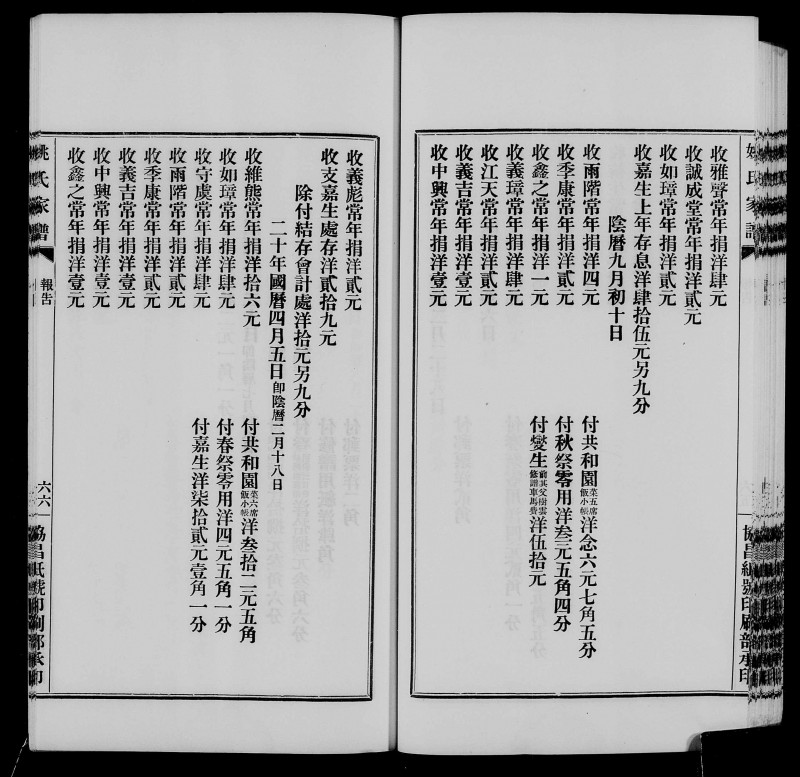 收雅聲常年捐洋肆元
收誠成堂常年捐洋貳元
收如璋常年捐洋貳元
收嘉生上年存息洋肆拾伍元另九分
陰曆九月初十日
收雨階常年捐洋四元 付共和園菜五席飯小帳洋念六元七角五分
收季康常年捐洋貳元 付秋祭零用洋叁元五角四分
收鑫之常年捐洋一元 付燮生前其父樹雲修譜車馬費洋伍拾元
收義璋常年捐洋肆元
收江天常年捐洋貳元
收義吉常年捐洋壹元
收中興常年捐洋壹元
收義彪常年捐洋貳元
收支嘉生處存洋貳拾九元
除付結存會計處洋拾元另九分
二十年國曆四月五日即陰曆二月十八日
收維熊常年捐洋拾六元 付共和園菜六席飯小帳洋叁拾二元五角
收如璋常年捐洋肆元 付春祭零用洋四元五角一分
收守虞常年捐洋肆元 付嘉生洋柒拾貳元壹角一分
收雨階常年捐洋貳元
收季康常年捐洋貳元
收義吉常年捐洋壹元
收中興常年捐洋壹元
收鑫之常年捐洋壹元
姚氏家譜
報告
六六
協昌紙號印刷部承印